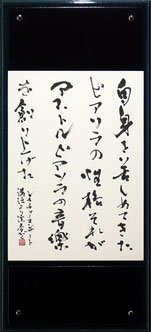 自身を苦しめてきた
ピアソラの性格それが
アストル・ピアソラの音楽
を創り上げた